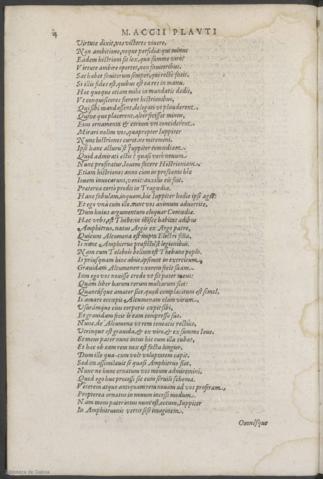 M. ACCII PLAVTI
Virtute dixit, vos victores vivere,
Non ambitione, neque perfidia: qui minus
Eadem histrioni sit lex, quae summo viro?
Virtute ambire oportet, non favitoribus.
Sat habet favitorum semper, qui recte facit,
Si illis fides est, quibus est ea res in manu.
Hoc quoque etiam mihi in mandatis dedit,
Vt conquistores fierent histrionibus,
Qui sibi mandassent, delegati vt plauderent,
Quive quo placeret alter fecisset minus,
Eius ornamenta & corium vti conciderent.
Mirari nolim vos, quapropter Iuppiter
Nunc histriones curet. ne miremini.
Ipse hanc acturu'st Iuppiter comoediam.
Quid admirati estis? quasi vero novum
Nunc proferatur, Iovem facere Histrioniam.
Etiam histriones anno cum in proscenio hic
Iovem invocarunt, venit: auxilio eis fuit.
Praeterea certo prodit in Tragoedia.
Hanc fabulam, inquam, hic Iuppiter hodie ipse aget:
Et ego vna cum illo. nunc vos animum advortite,
Dum huius argumentum eloquar Comoediae.
Haec vrbs est Thebae: in illisce habitat aedibus
Amphitruo, natus Argis ex Argo patre,
Quicum Alcumena est nupta Electri filia,
Is nunc Amphitruo praefectu'st legionibus.
Nam cum Telebois bellum est Thebano poplo.
Is priusquam hinc abiit, ipsemet in exercitum,
Gravidam Alcumenam vxorem fecit suam.
Nam ego vos novisse credo vt sit pater meus:
Quam liber harum rerum multarum siet:
Quantusque amator siet, quod complacitum est semel.
Is amare occoepit Alcumenam clam virum,
Vsuramque eius corporis cepit sibi,
Et gravidam fecit is eam compressu suo.
Nunc de Alcumena vt rem teneatis rectius,
Vtrinque est gravida, & ex viro, & ex summo Iove.
Et meus pater nunc intus hic cum illa cubat,
Et haec ob eam rem nox est facta longior,
Dum illa quacum volt voluptatem capit.
Sed ita assimilavit se quasi Amphitruo siet.
Nunc ne hunc ornatum vos meum admiremini,
Quod ego huc processi sic cum servili schema.
Veterem atque antiquam rem novam ad vos proferam,
Propterea ornatus in novum incessi modum.
Nam meus pater intus nunc est, eccum, Iuppiter
In Amphitruonis vertit sese imaginem.
Omnesque